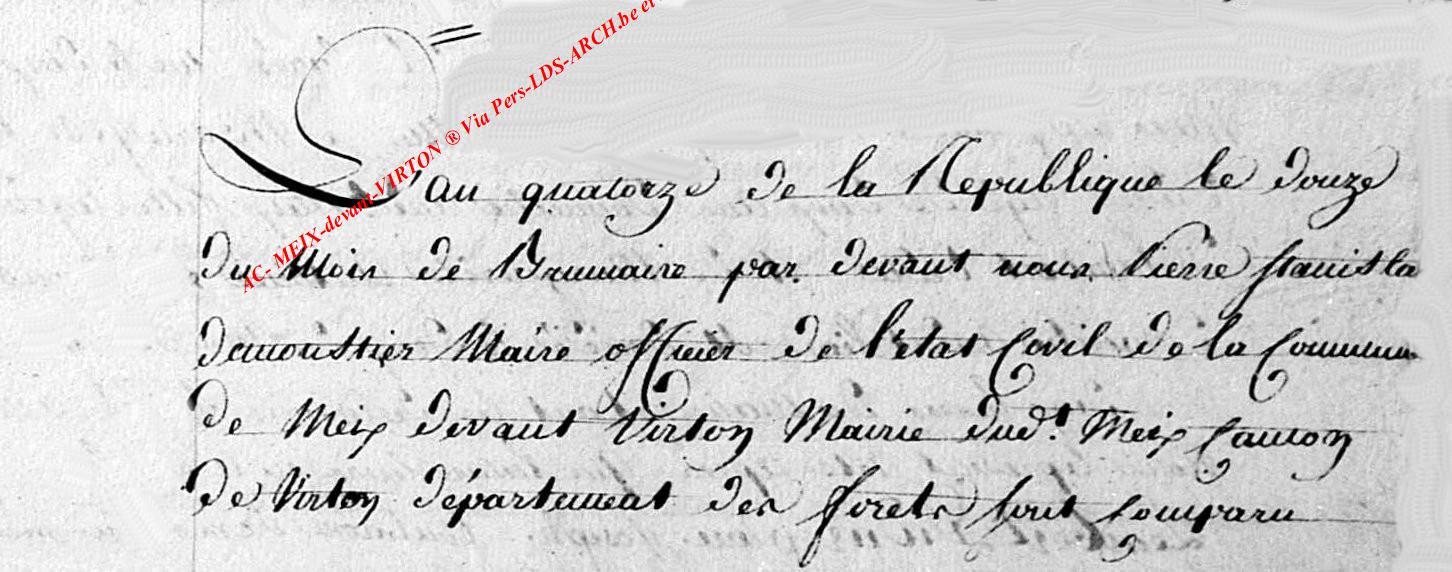 AC- MEIX-devant-VIRTON ® Via Pers-LDS-ARCH.be et
L'an quatorze de la Republique le douze
du Mois de Brumaire par devant nous Pierre stanisla
demoustier Maire officier de l'état Civil de la Commune
de Meix devant Virton Mairie dud.t Meix Canton
de Virton département des forets sont Comparu